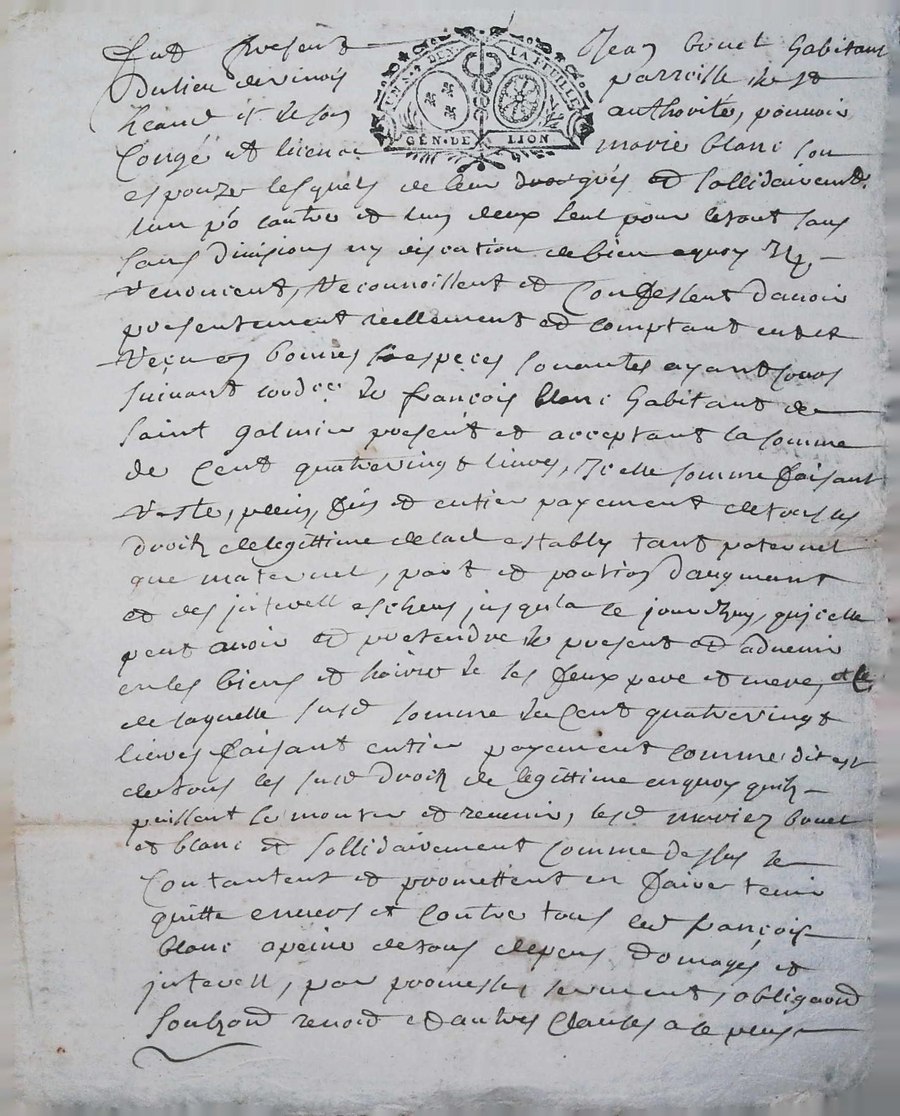 Fut present Jean bouet habitant
Du lieu de vinois parroisse de St
heand et de son authorité, pouvoir
Congé et licence marie blanc son
UN S. DEN. LA FEUILLE
GEN. DE LION
espouze lesquels de leur gré et sollidairement
lun po lautre et lun deux seul pour le tout sans
sans divisions ny discution de bien a quoy ilz
renoncent, reconnoissent et Confessent davoir
presentement reellement et comptant
receu en bonnes especes sonantes ayant cours
suivant de françois blanc habitant de
saint galmier present et acceptant la somme
de Cent quatrevingt livres, Icelle somme faisant
reste, plein, fin et entier payement de tous les
droitz de legittime estably tant paternel
que maternel, part et portion daugmant
et des interestz escheus jusqua ce jourdhuy, quicelle
peut avoir et pretendre de present et advenir
en les biens et hoirie de ses feux pere et mere, et
de laquelle susd somme de Cent quatrevingt
livres faisant entier payement comme dit est
de tous les susd droitz de legittime en quoy quilz
puissent se monter et revenir, lesd mariez bouet
et blanc et sollidairement comme dessus se
Contantent et promettent en faire tenir
quitte envers et contre tous led françois
blanc a peine de tous depens domages et
interestz, par promesses serments, obligaond
renond et autres Clauses a ce